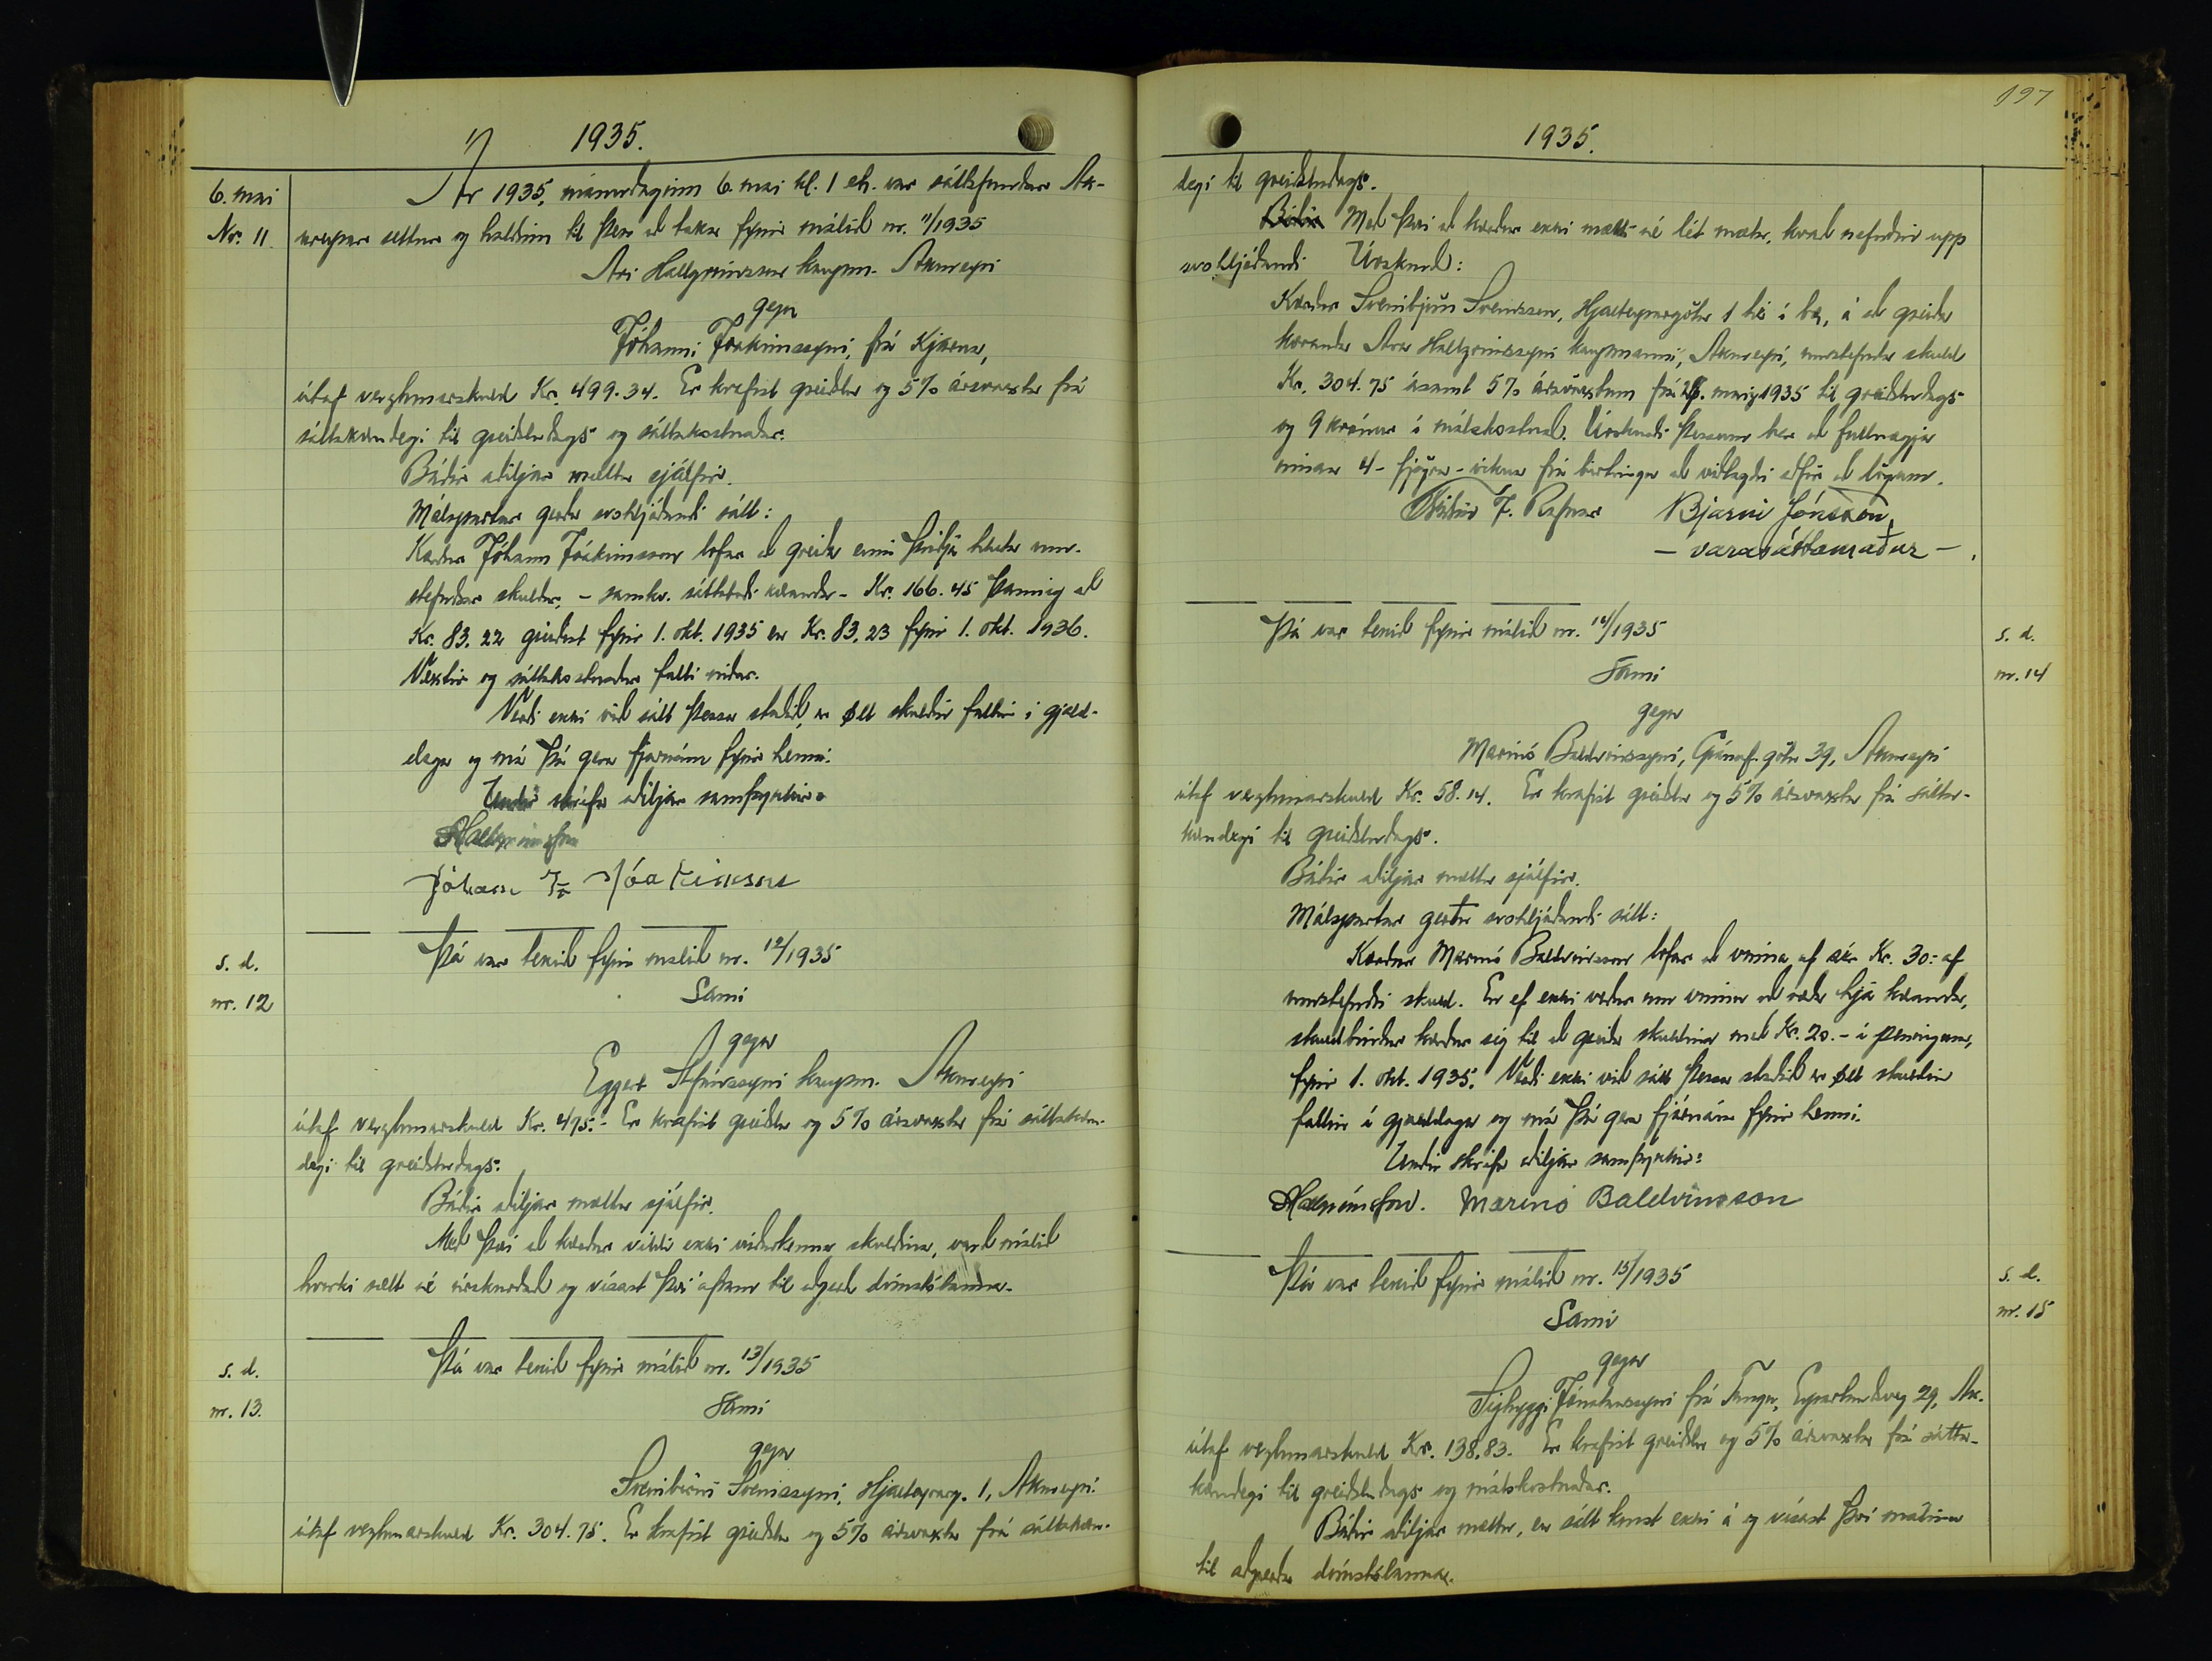 1935.
6. maí
Nr. 11
Ár 1935, mánudaginn 6. maí kl. 1 eh. var sáttafundur Ak-
ureyrar settur og haldinn til þess að taka fyrir málið nr. 11/1935
Ari Hallgrímsson kaupm. Akureyri
gegn
Jóhanni Jóakimssyni, frá Kjarna,
útaf verzlunarskuld Kr. 499.34. Er krafist greiðslu og 5% ársvaxta frá
sáttakærudegi til greiðsludags og sáttakostnaðar.
Báðir aðiljar mættu sjálfir.
Málspartar gerðu svohljóðandi sátt:
Kærður Jóhann Jóakimsson lofar að greiða einn þriðja hluta um-
stefndrar skuldar, - samkv. sáttatilboði kæranda - Kr. 166.45 þannig að
Kr. 83.22 greiðist fyrir 1. okt. 1935 en Kr. 83,23 fyrir 1. okt. 1936.
Vextir og sáttakostnaður falli niður.
Verði ekki við sátt þessa staðið, er öll skuldin fallin í gjald-
daga og má þá gera fjárnám fyrir henni.
Undir skrifa aðiljar samþykkir:
AHallgrímsson
Jóhann Jóakimsson
s. d.
nr. 12
Þá var tekið fyrir málið nr. 12/1935
Sami
gegn
Eggert Stefánssyni kaupm. Akureyri
útaf verzlunarskuld Kr. 475.- Er krafist greiðslu og 5% ársvaxta frá sáttakæru-
degi til greiðsludags.
Báðir aðiljar mættu sjálfir.
Með því að kærður vildi ekki viðurkenna skuldina, varð málið
hvorki sætt né úrskurðað og vísast því áfram til aðgerð dómstólanna.
s. d.
nr. 13.
Þá var tekið fyrir málið nr. 13/1935
Sami
gegn
Sveinbirni Sveinssyni, Hjalteyrarg. 1, Akureyri
útaf verzlunarskuld Kr. 304.75. Er krafist greiðslu og 5% ársvaxta frá sáttakæru-
197
1935.
degi til greiðsludags.
Báðir Með því að kærður ekki mætti né lét mæta, kvað nefndin upp
svohljóðandi Úrskurð:
Kærður Sveinbjörn Sveinsson, Hjalteyrargötu 1 hér í bæ, á að greiða
kæranda Ara Hallgrímssyni kaupmanni, Akureyri, umstefnda skuld
Kr. 304.75 ásamt 5% ársvöxtum frá 26. maí 1935 til greiðsludags
og 9 krónur í málskostnað. Úrskurði þessum ber að fullnægja
innan 4 - fjögra - vikna frá birtingu að viðlagðri aðför að lögum.
F. Rafnar Bjarni Jónsson,
- varasáttamaður -.
Þá var tekið fyrir málið nr. 14/1935
s. d.
nr. 14
Sami
gegn
Marinó Baldvinssyni, Gránuf.götu 39, Akureyri
útaf verzlunarskuld Kr. 58.14. Er krafist greiðslu og 5% ársvaxta frá sátta-
kærudegi til greiðsludags.
Báðir aðiljar mættu sjálfir.
Málspartar gerðu svohljóðandi sátt:
Kærður Marinó Baldvinsson lofar að vinna af sér Kr. 30.- af
umstefndri skuld. En ef ekki verður um vinnu að ræða hjá kæranda,
skuldbindur kærður sig til að greiða skuldina með Kr. 20.- í peningum,
fyrir 1. okt. 1935. Verði ekki við sátt þessa staðið er öll skuldin
fallin í gjalddaga og má þá gera fjárnám fyrir henni.
Undir skrifa aðiljar samþykkir:
AHallgrímsson. Marinó Baldvinsson
Þá var tekið fyrir málið nr. 15/1935
s. d.
nr. 15
Sami
gegn
Sigtryggi Jónatanssyni frá Tungu, Eyrarlandsveg 29, Ak.
útaf verzlunarskuld Kr. 138.83. Er krafist greiðslu og 5% ársvaxta frá sátta-
kærudegi til greiðsludags og málskostnaðar.
Báðir aðiljar mættu, en sátt komst ekki á og vísast því málinu
til aðgerða dómstólanna.